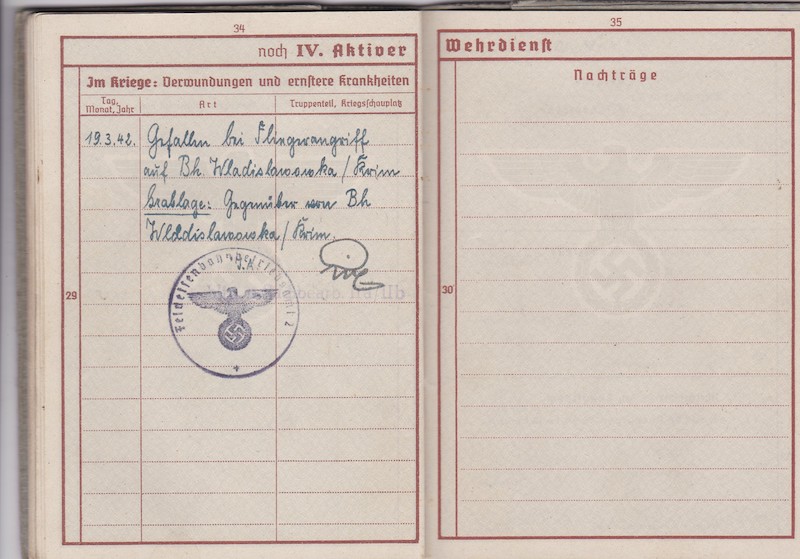 34
noch IV. Aktiver
Im Kriege: Verwundungen und ernstere Krankheiten
Tag, Monat, Jahr
Art
Truppenteil, Kriegsschauplatz
19.3.42. Gefallen bei Fliegerangriff
auf Bh. Wladislawowka / Krim
Grablage: Gegenüber von Bh
Wladislawowka / Krim.
Feldeisenbahnbetriebsamt 2
29
35
Wehrdienst
Nachträge
30